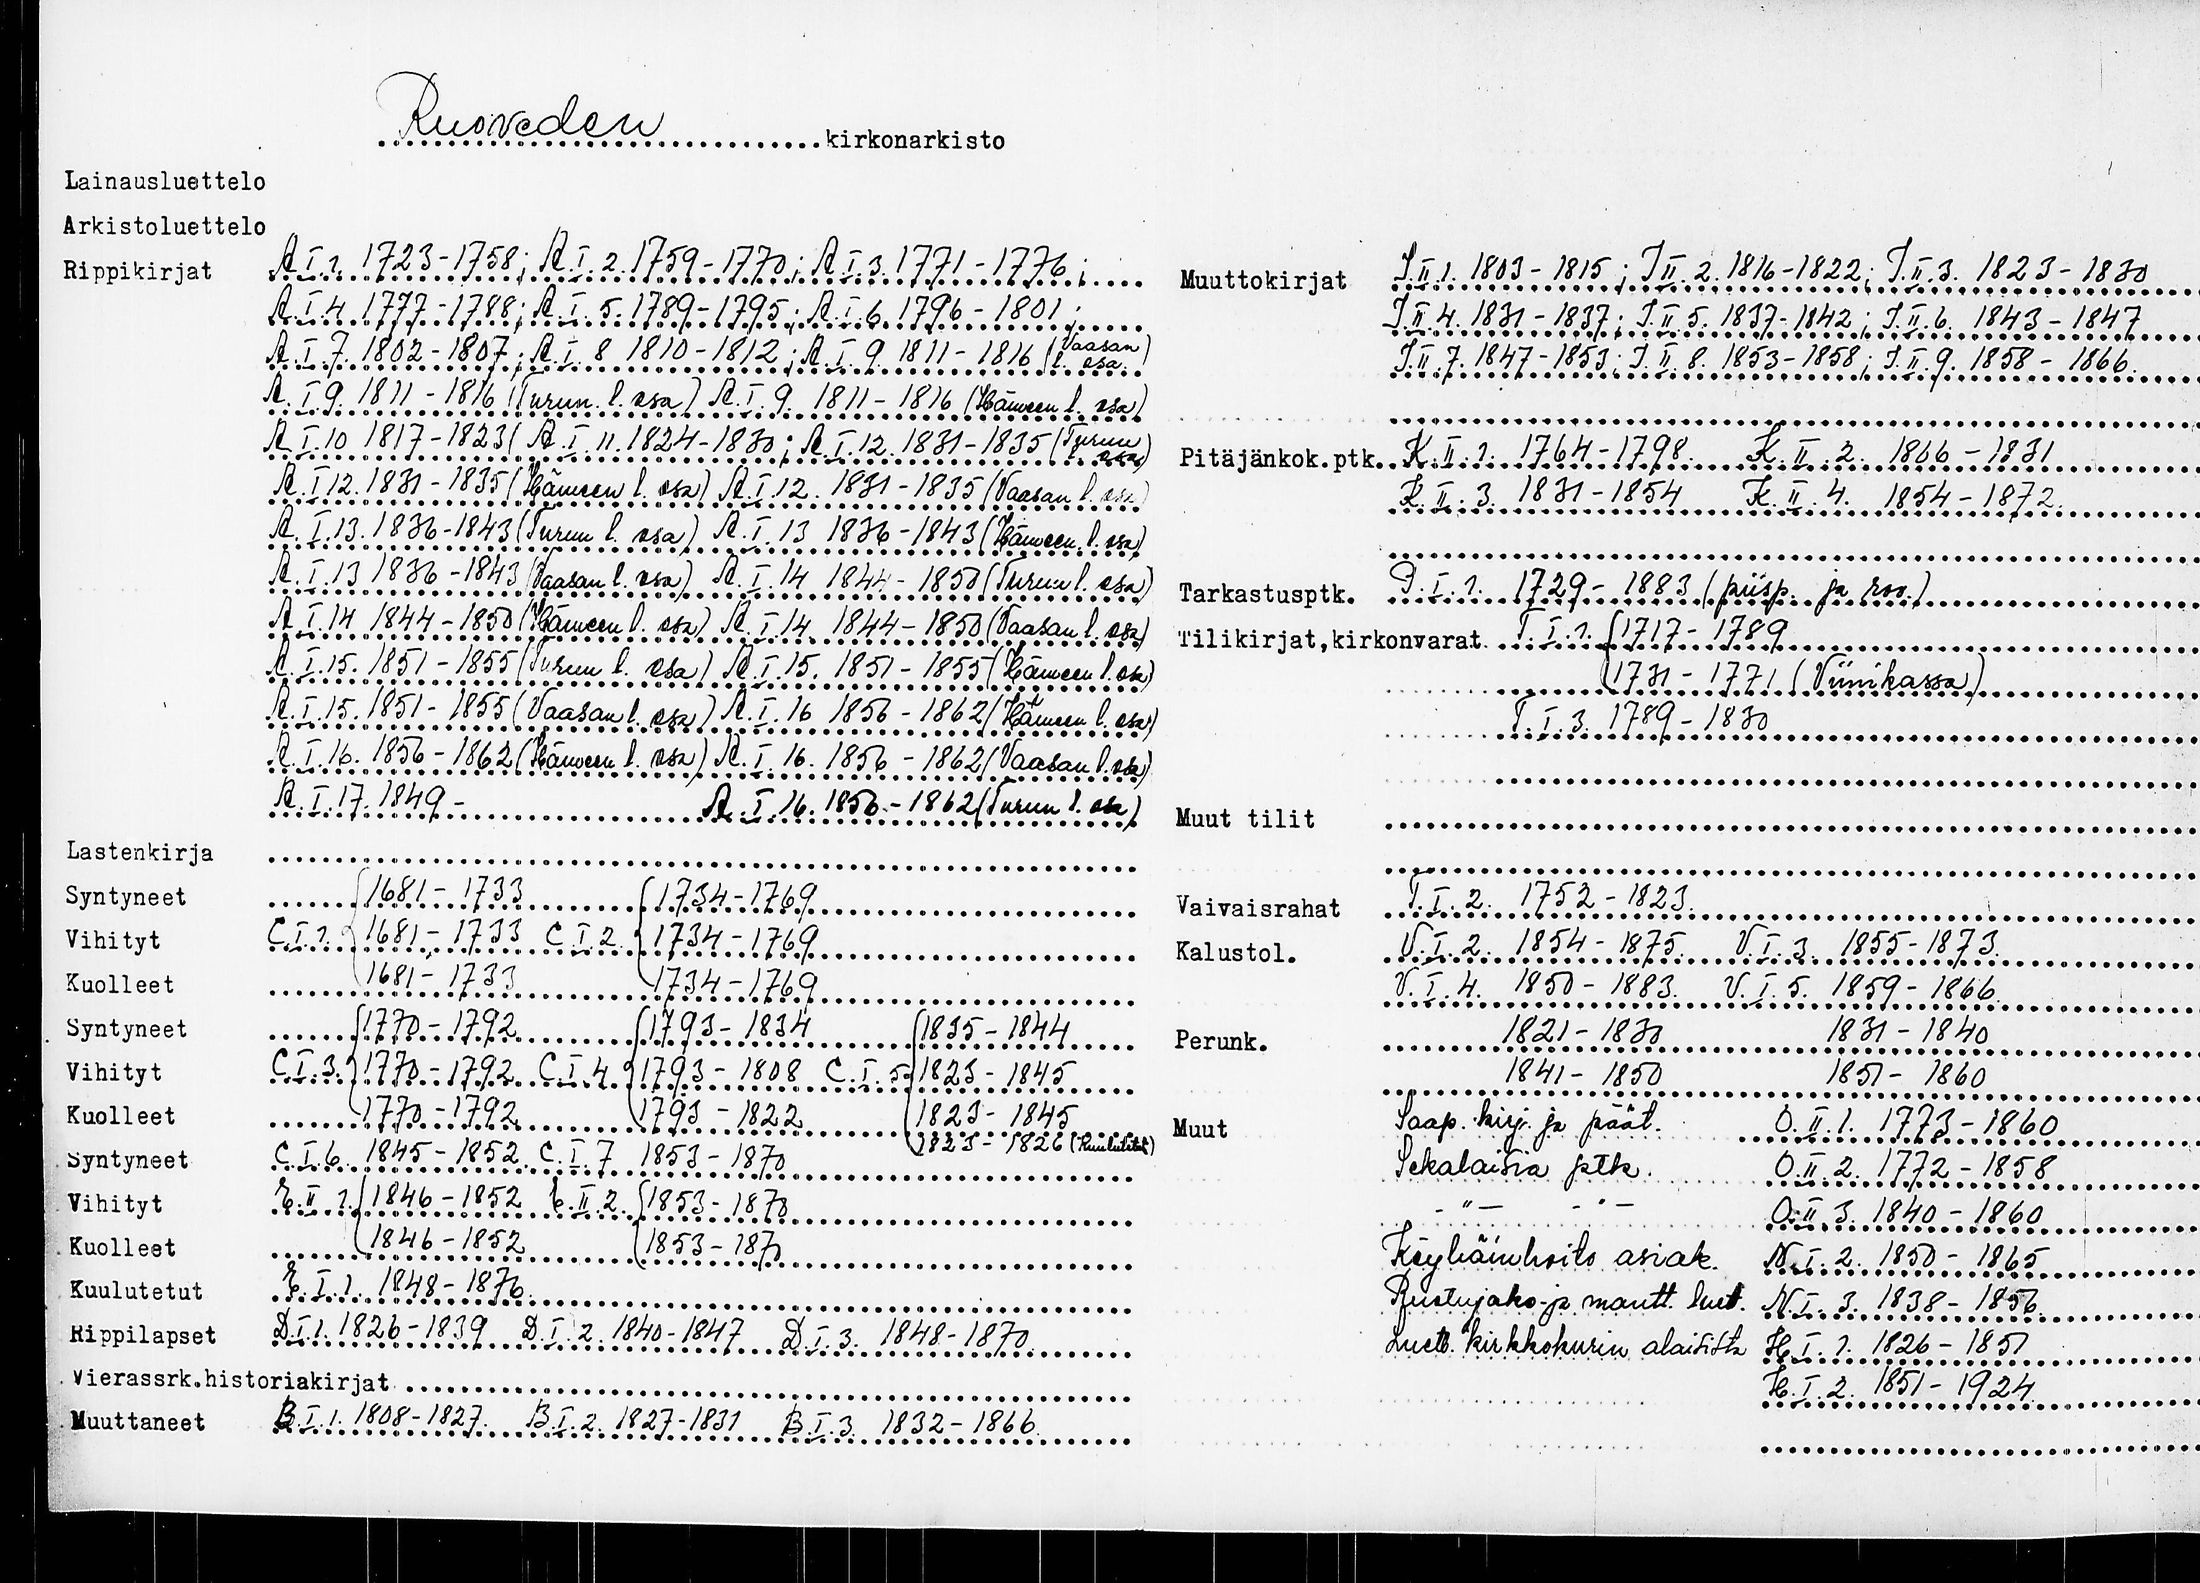 Ruoveden kirkonarkisto
Lainausluettelo
Arkistoluettelo
Rippikirjat A.I.1. 1723-1758; A.I.2. 1759-1770; A.I.3. 1771-1776;
A.I.4 1777-1788; A.I.5. 1789-1795; A.I.6. 1796-1801;
A.I.7. 1802-1807; A.I.8 1810-1812; A.I.9. 1811-1816 (Vaasan l. osa)
A.I.9. 1811-1816 (Turun l. osa) A.I.9. 1811-1816 (Hämeen l. osa)
A.I.10 1817-1823( A.I.11. 1824-1830; A.I.12. 1831-1835 (Turun osa)
A.I.12. 1831-1835 (Hämeen l. osa) A.I.12. 1831-1835 (Vaasan l. osa)
A.I.13. 1836-1843 (Turun l. osa) A.I.13 1836-1843 (Hämeen l. osa)
A.I.13 1836-1843 (Vaasan l. osa) A.I.14 1844-1850 (Turun l. osa)
A.I.14 1844-1850 (Hämeen l. osa) A.I.14. 1844-1850 (Vaasan l. osa)
A.I.15. 1851-1855 (Turun l. osa) A.I.15. 1851-1855 (Hämeen l. osa)
A.I.15. 1851-1855 (Vaasan l. osa) A.I.16 1856-1862 (Hämeen l. osa)
A.I.16. 1856-1862 (Hämeen l. osa) A.I.16. 1856-1862 (Vaasan l. osa)
A.I.17. 1849- A.I.16. 1856-1862 (Turun l. osa)
Lastenkirja
Syntyneet 1681-1733 1734-1769
Vihityt C.I.1. 1681-1733 C.I.2. 1734-1769
Kuolleet 1681-1733 1734-1769
Syntyneet 1770-1792 1793-1834 1835-1844
Vihityt C.I.3. 1770-1792 C.I.4. 1793-1808 C.I.5. 1823-1845
Kuolleet 1770-1792 1793-1822 1823-1845
1823-1826 (kuulutet.)
Syntyneet C.I.6. 1845-1852 C.I.7 1853-1870
Vihityt E.II.1. 1846-1852 E.II.2. 1853-1870
Kuolleet 1846-1852 1853-1870
Kuulutetut E.I.1. 1848-1876.
Rippilapset D.I.1. 1826-1839 D.I.2. 1840-1847 D.I.3. 1848-1870.
Vierassrk.historiakirjat
Muuttaneet B.I.1. 1808-1827. B.I.2. 1827-1831 B.I.3. 1832-1866.
Muuttokirjat I.II.1. 1803-1815; I.II.2. 1816-1822; I.II.3. 1823-1830
I.II.4. 1831-1837; I.II.5. 1837-1842; I.II.6. 1843-1847
I.II.7. 1847-1853; I.II.8. 1853-1858; I.II.9. 1858-1866.
Pitäjänkok.ptk. K.II.1. 1764-1798. K.II.2. 1866-1831
K.II.3. 1831-1854 K.II.4. 1854-1872.
Tarkastusptk. P.I.1. 1729-1883 (piisp. ja roo.)
Tilikirjat,kirkonvarat T.I.1. 1717-1789
1731-1771 (Viinikassa)
T.I.3. 1789-1830
Muut tilit
Vaivaisrahat T.I.2. 1752-1823.
Kalustol. V.I.2. 1854-1875. V.I.3. 1855-1873.
V.I.4. 1850-1883. V.I.5. 1859-1866.
Perunk. 1821-1830 1831-1840
1841-1850 1851-1860
Muut Saap. kirj. ja päät. O.II.1. 1773-1860
Sekalaisia ptk. O.II.2. 1772-1858
-"- -"- O.II.3. 1840-1860
Köyhäinhoito asiak. N.I.2. 1850-1865
Ruotujako- ja mantt. luet. N.I.3. 1838-1856.
Luett. kirkkokurin alaisista H.I.1. 1826-1851
H.I.2. 1851-1924.